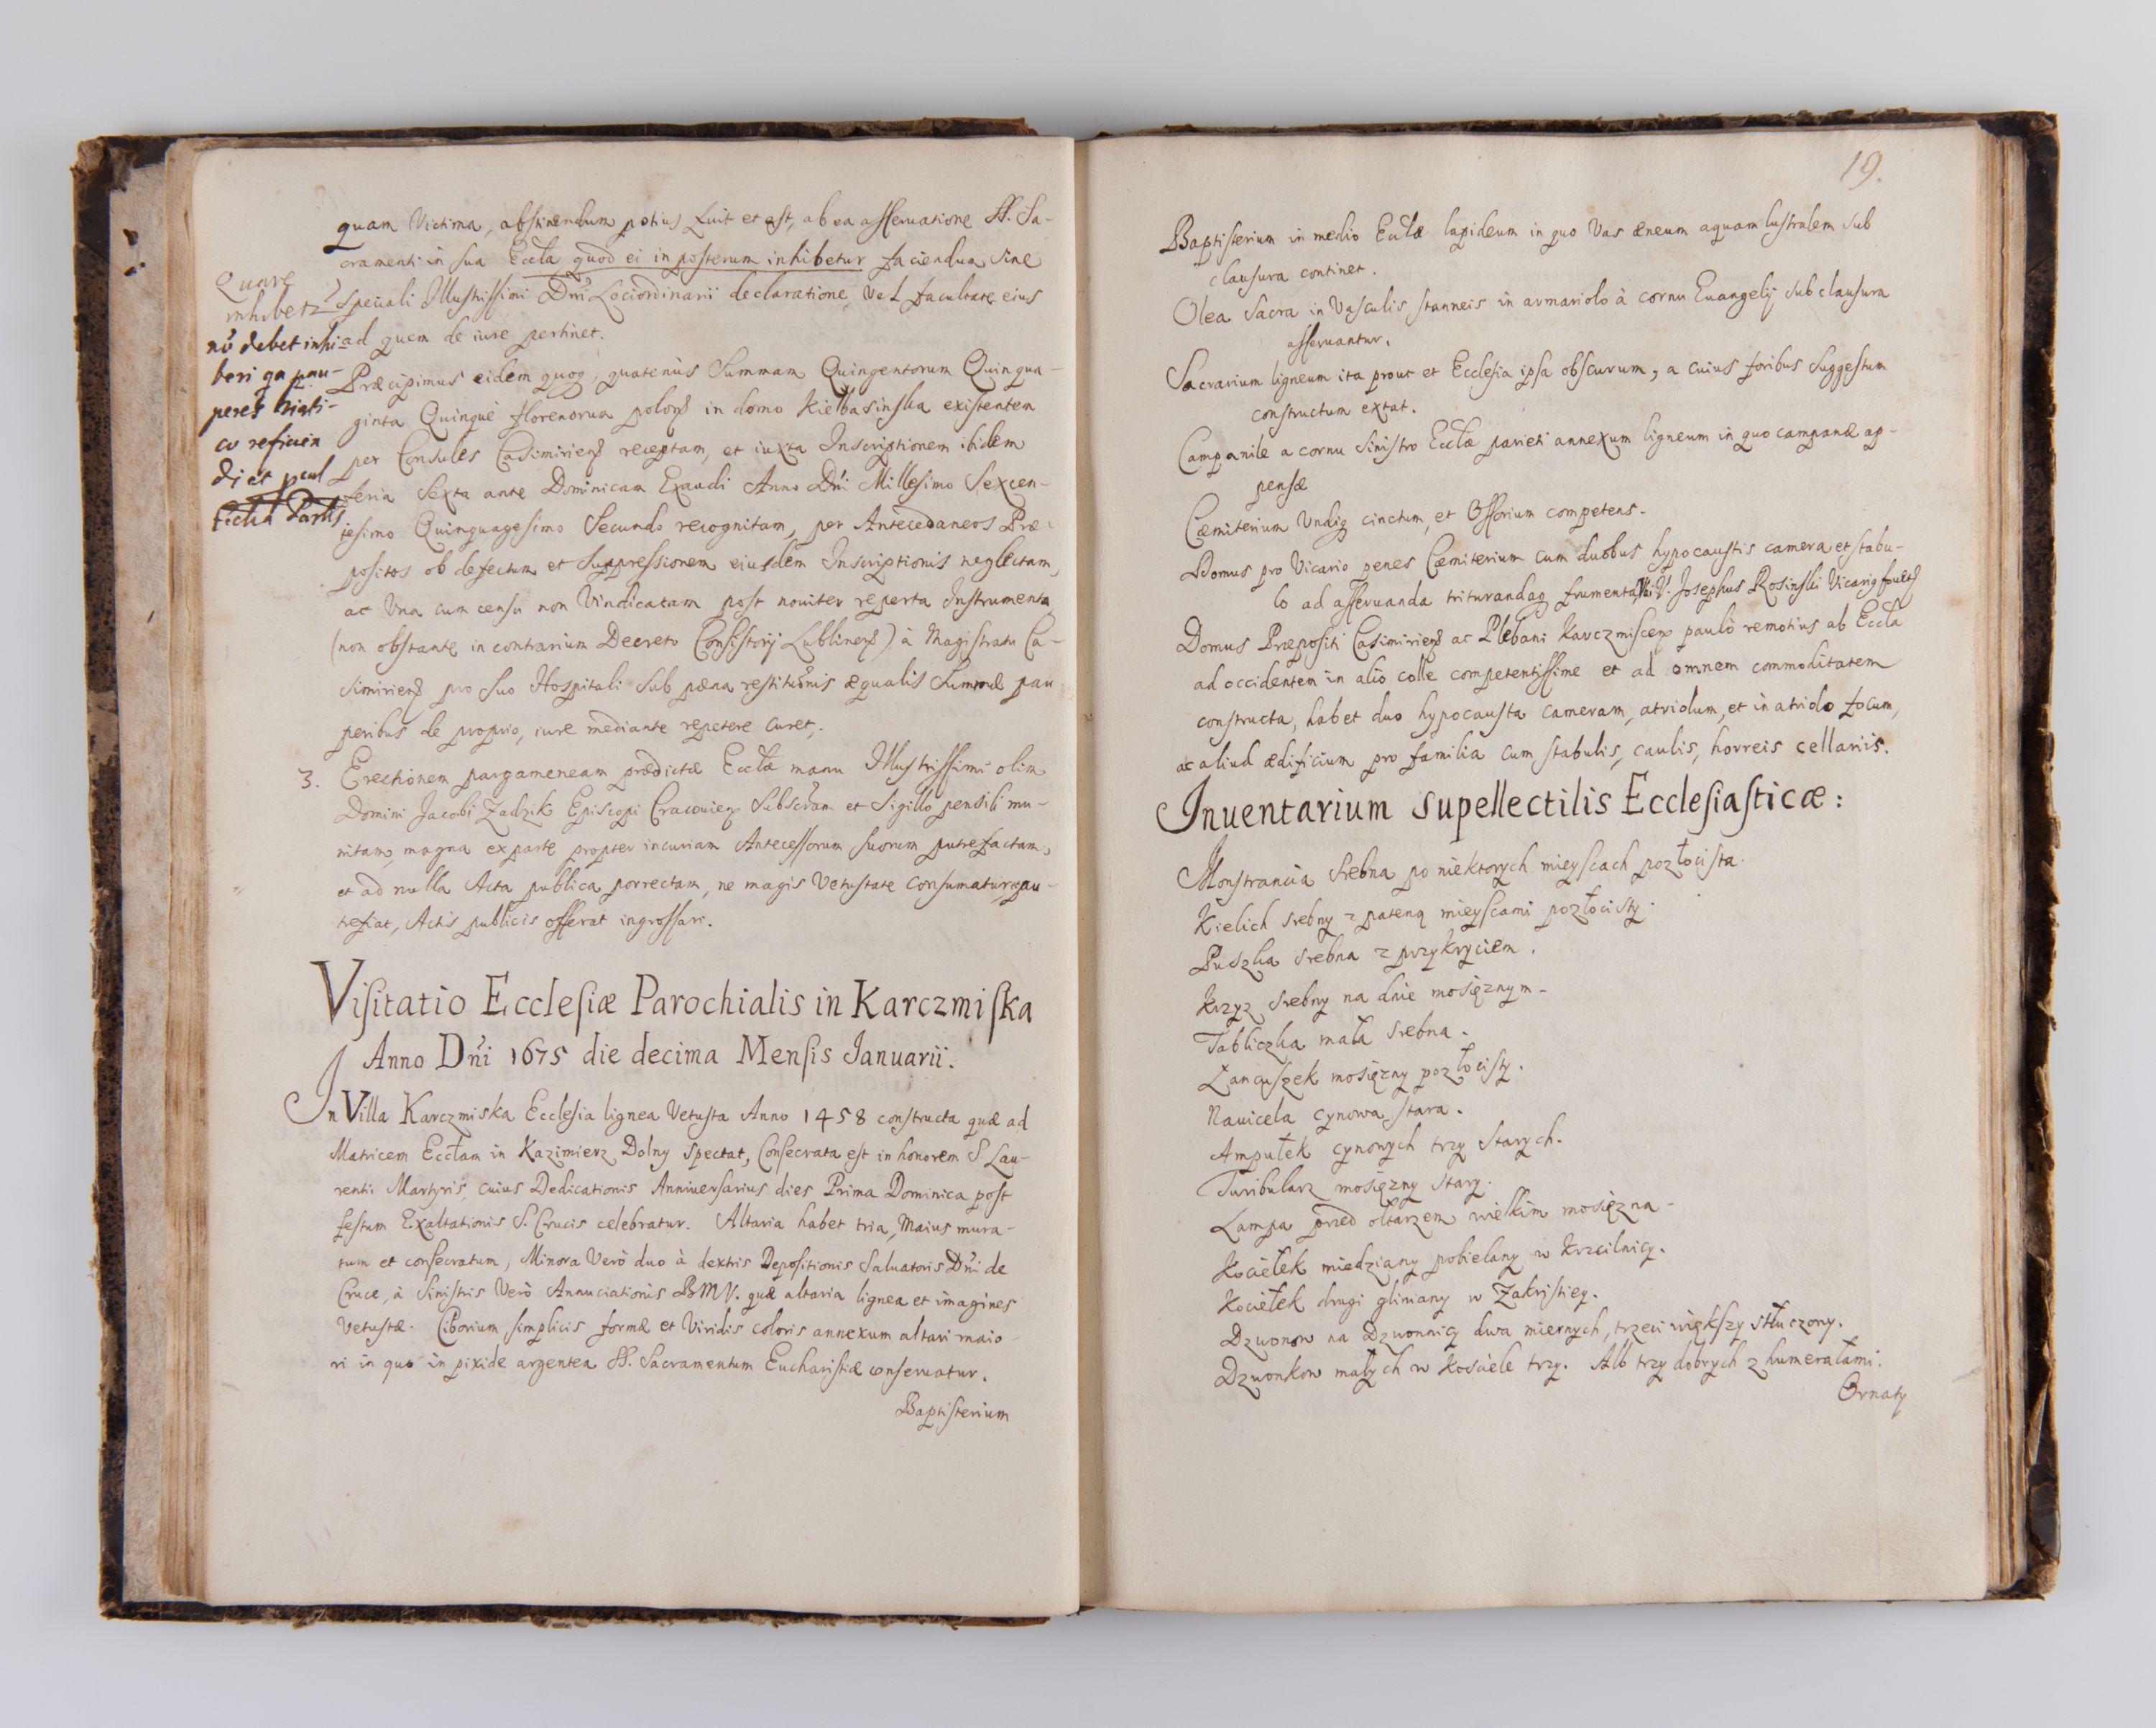 quam Victima, abstinendum potius fuit et est, ab ea asseruatione SS. Sa-
cramenti in sua Eccła quod ei in posterum inhibetur faciendum sine
speciali Illustrissimi Dńi Lociordinarii declaratione, Vel facultate eius
ad quem de iure pertinet.
Quare
inhibetz?
nō debet inhi-
beri qa pau-
peres
reficien
di et
Præcipimus eidem quoq, quatenùs Summam Quingentorum Quinqua-
ginta Quinque florenorum in domo Kiełbasinska existentem
per Consules Casimirien receptam, et iuxta Inscriptionem ibidem
feria Sexta ante Dominicam Exaudi Anno Dńi Millesimo Sexcen-
tesimo Quinquagesimo Secundo recognitam, per Antecedaneos Præ-
positos ob defectum et Suppressionem eiusdem Inscriptionis neglectam,
ac Vna cum censu non Vindicatam post noviter reperta Instrumenta
(non obstante in contrarium Decreto Consistorij Lublinen) à Magistratu Ca-
simirien pro suo Hospitali sub pæna restitūnis æqualis Summæ pau
peribus de proprio, iure mediante repetere curet.
3. Erectionem pargameneam prædictæ Eccłæ manu Illustrissimi olim
Domini Jacobi Zadzik Episcopi Cracouien Subscłam et Sigillo pensili mu-
nitam, magna ex parte propter incuriam Antecessorum suorum putrefactam,
et ad nulla Acta publica porrectam, ne magis Vetustate consumatur, pu-
trefiat, Actis publicis offerat ingrossari.
Visitatio Ecclesiæ Parochialis in Karczmiska
Anno Dńi 1675 die decima Mensis Ianuarii.
In Villa Karczmiska Ecclesia lignea Vetusta Anno 1458 constructa quæ ad
Matricem Eccłam in Kazimierz Dolny spectat, Consecrata est in honorem S. Lau-
rentii Martyris, cuius Dedicationis Anniuersarius dies Prima Dominica post
festum Exaltationis S. Crucis celebratur. Altaria habet tria, Maius mura-
tum et consecratum, Minora Verò duo à dextris Depositionis Saluatoris Dńi de
Cruce, à Sinistris Verò Annuciationis BMV. quæ altaria lignea et imagines
Vetustæ. Ciborium simplicis formæ et Viridis coloris annexum altari maio
ri in quo in pixide argentea SS. Sacramentum Eucharistiæ conseruatur.
Baptisterium
19.
Baptisterium in medio Eccłæ lapideum in quo Vas æneum aquam lustralem sub
clausura continet.
Olea Sacra in Vasculis stanneis in armariolo à cornu Euangelij sub clausura
asseruantur.
Sacrarium ligneum ita prout et Ecclesia ipsa obscurum, a cuius foribus Suggestum
constructum extat.
Campanile a cornu Sinistro Eccłæ parieti annexum ligneum in quo campanæ ap-
pensæ
Cæmiterium Vndiq cinctum, et Ossorium competens.
Domus pro Vicario penes Cæmiterium cum duobus hypocaustis camera et stabu-
lo ad asseruanda triturandaq frumenta, Josephus Rosinski
Domus Præpositi Casimirien ac Plebani Karczmiscen paulò remotius ab Eccła
ad occidentem in alio colle competentissime et ad omnem commoditatem
constructa, habet duo hypocausta cameram, atriolum, et in atriolo focum,
ac aliud ædificium pro familia cum stabulis, caulis, horreis cellariis.
Inuentarium supellectilis Ecclesiasticæ:
Monstrancia srebna po niektorych mieyscach pozłocista.
Kielich srebny z pateną mieyscami pozłocisty.
Puszka srebna z przykryciem.
Krzyz srebny na dnie mosięznym.
Tabliczka mała srebna.
Łancuszek mosięzny pozłocisty.
Nauicela cynowa stara.
Ampułek cynowych trzy starych.
Turibularz mosięzny stary.
Lampa przed ołtarzem wielkim mosięzna.
Kociełek miedziany pobielany w Krzcilnicy.
Kociełek drugi gliniany w Zakristiey.
Dzwonow na Dzwonnicy dwa miernych, trzeci większy stłuczony.
Dzwonkow małych w kosciele trzy. Alb trzy dobrych z humerałami.
Ornaty